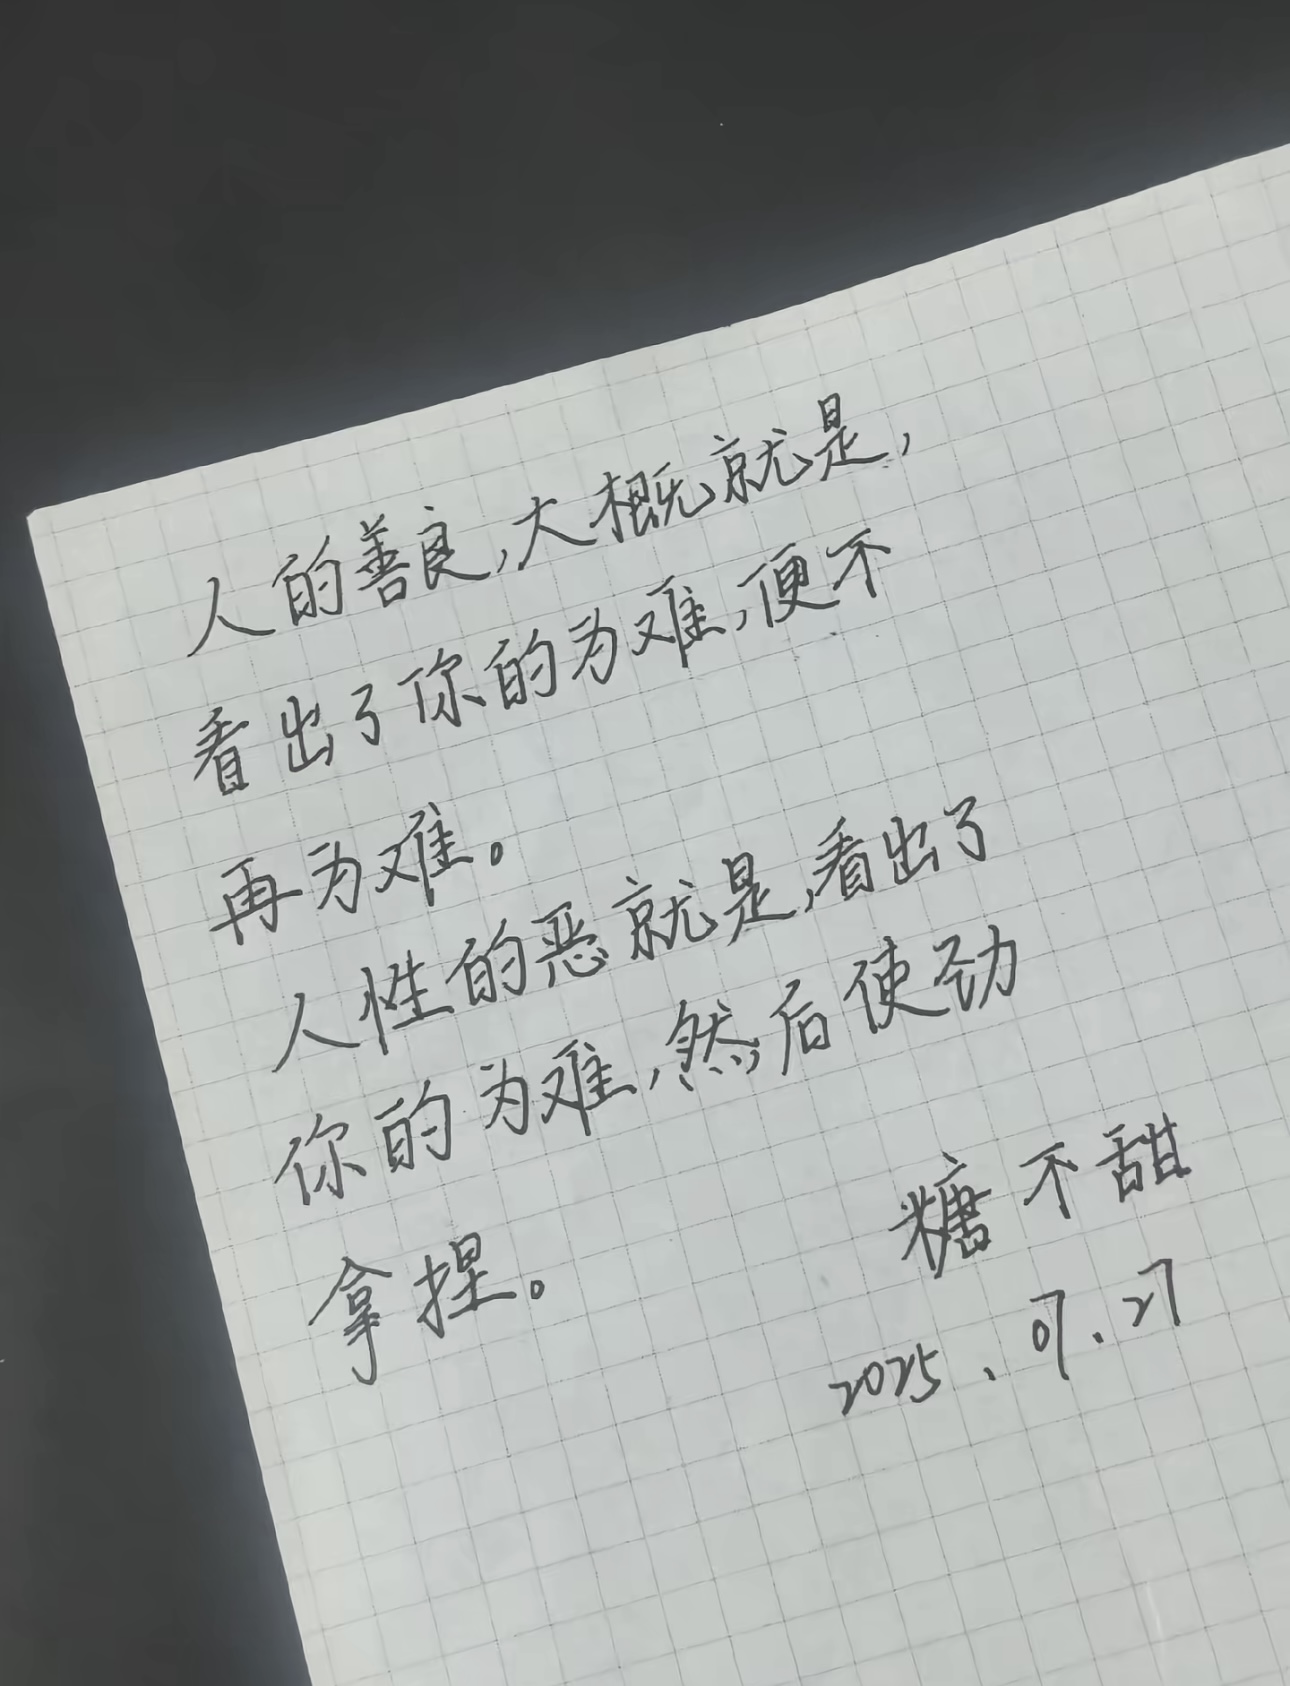 人的善良,大概就是,
看出了你的为难,便不
再为难。
人性的恶就是,看出了
你的为难,然后使劲
拿捏。
糖不甜
2025、07、27